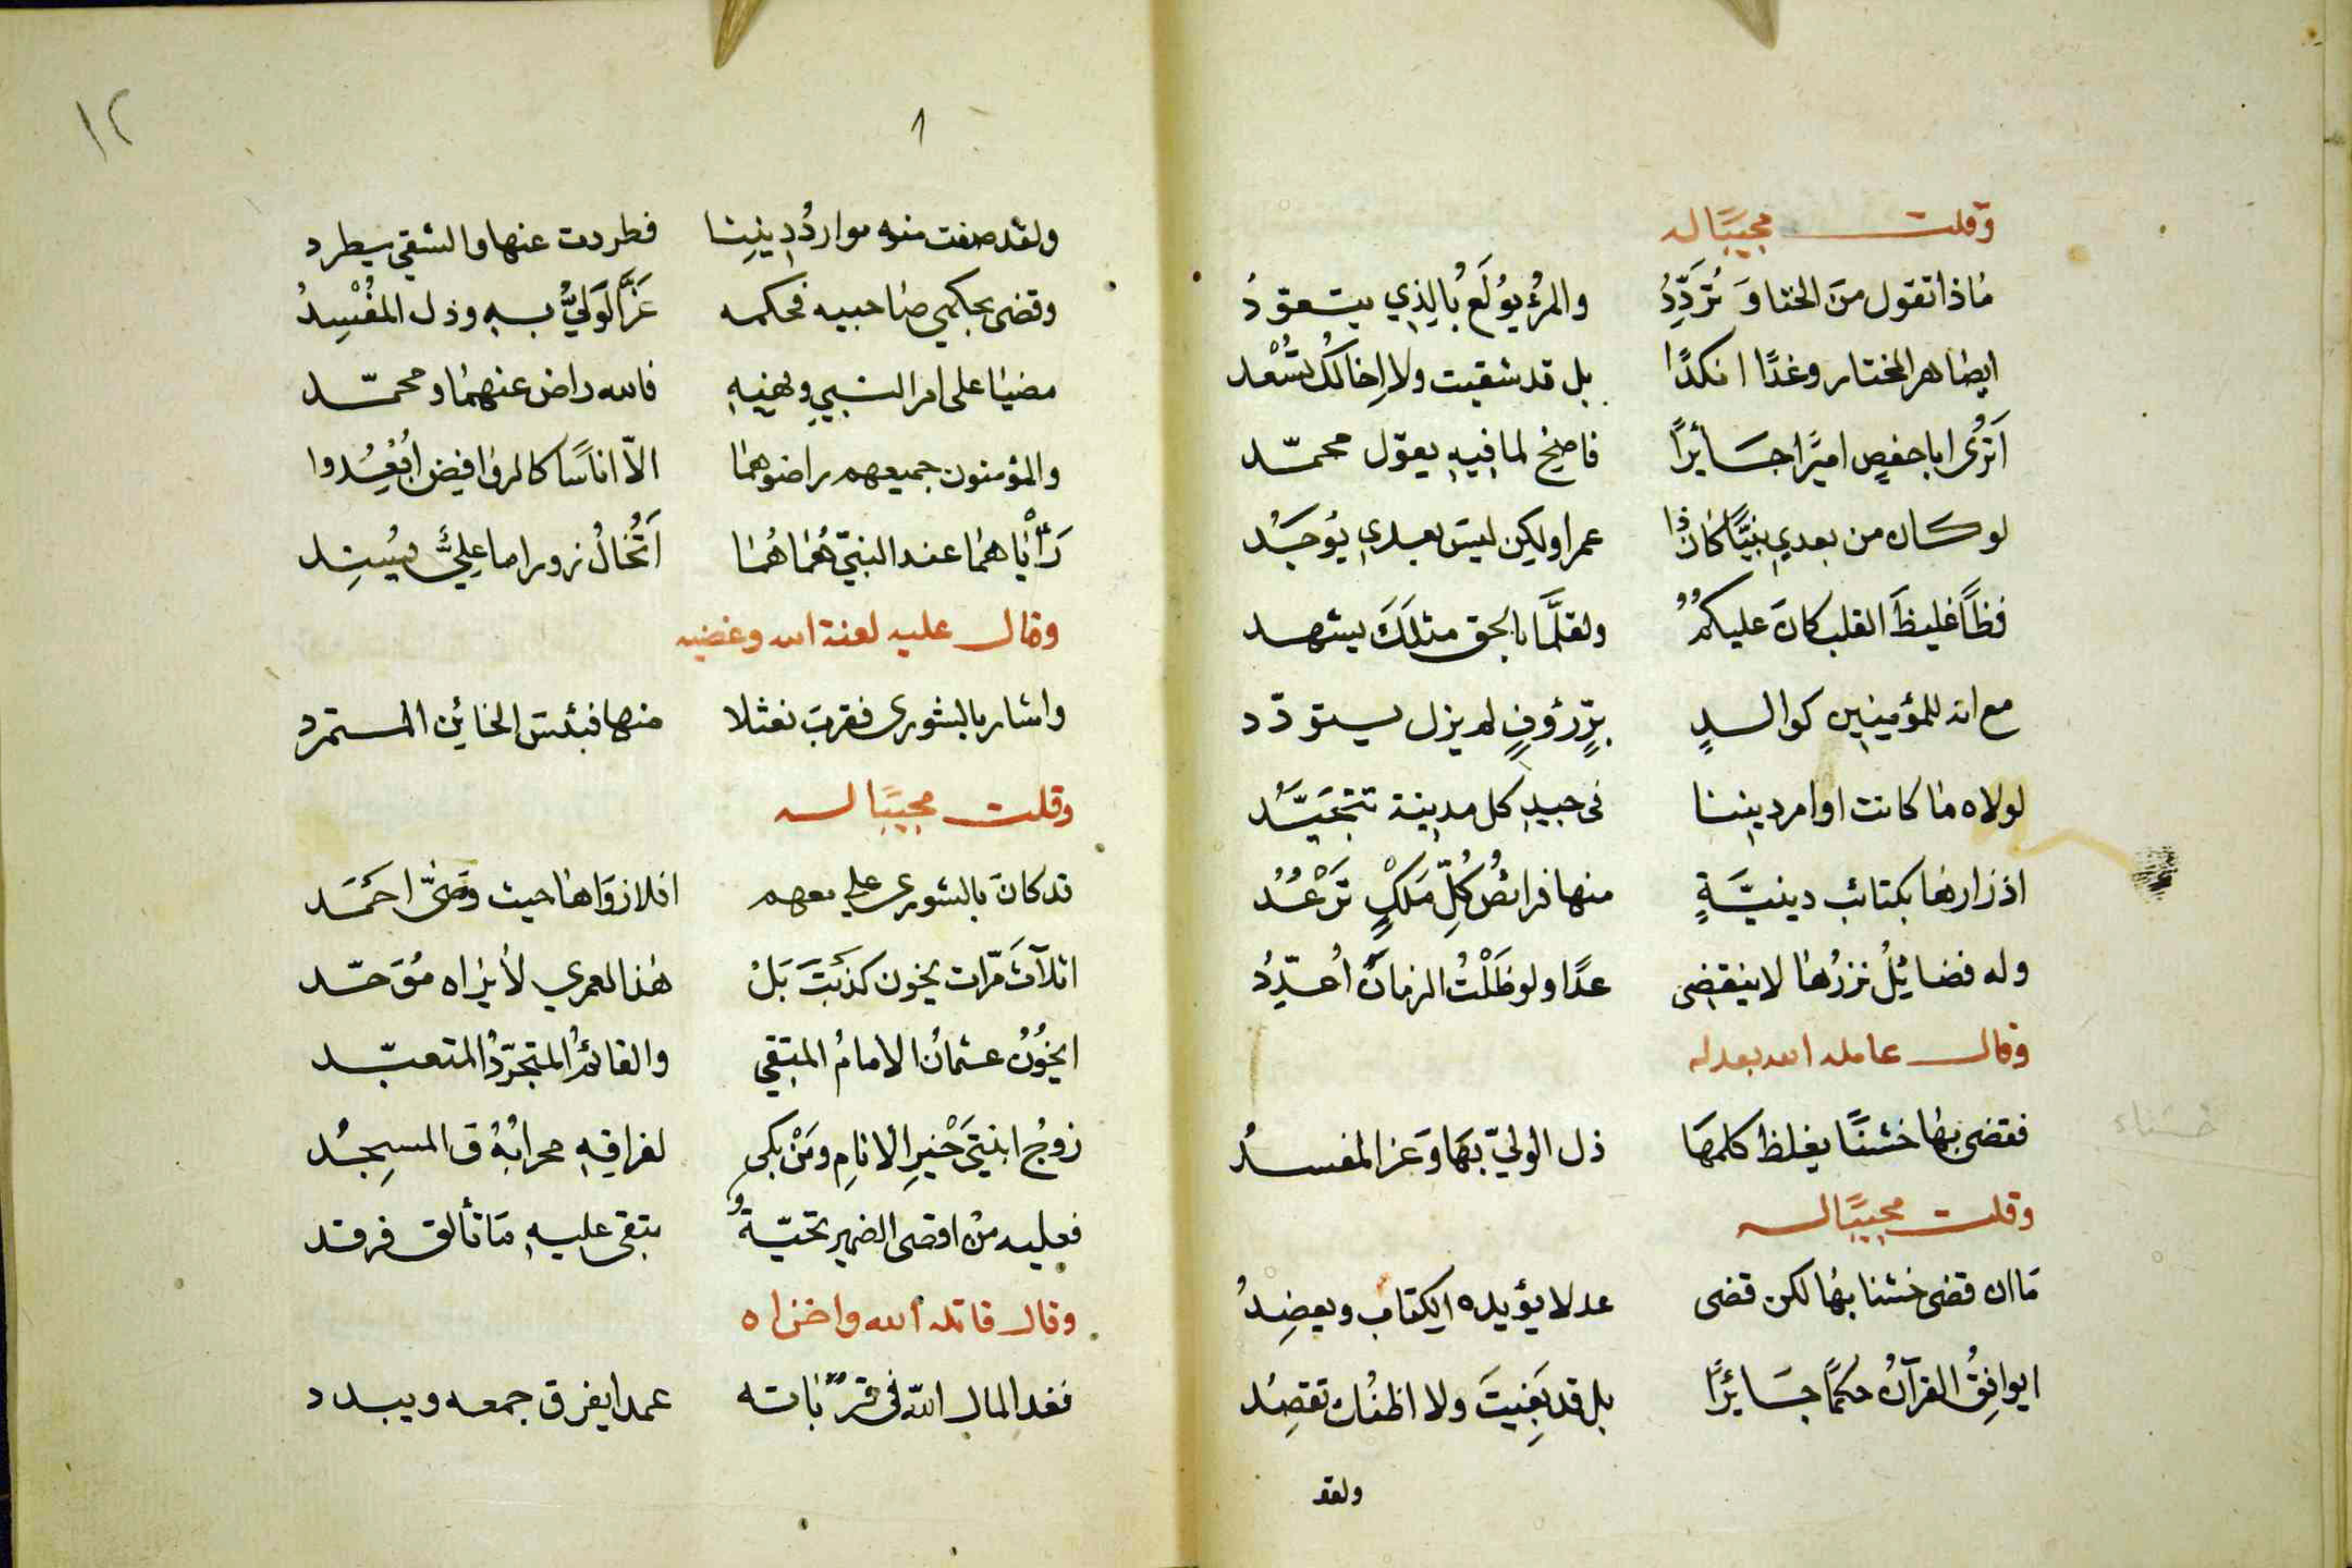 وقلت مجيبًا له
مَاذا تقول منَ الخنا وَ تُرَدِّدُ والمرءُ يُولَع بالذِي يتعوّدُ
ايضاهر المختار وغدًا انكدًا بل قد شقيت ولا اِخالك تسْعد
اَتَرَى ابا حفصٍ اميرًا جَائرًا فاصِخ لما فيهِ يقول محمّد
لو كان من بعدي نبيًّا كانَ ذا عمرا ولكن ليسَ بعدي يُوجَدُ
فظًا غليظَ القلب كانَ عليكمُ ولقلَّمَا بالحق مثلكَ يشهد
مع انه للمؤمنين كوالدٍ برٍّ رؤوفٍ لم يزل يتودّد
لولاه مَا كانت اوامر ديننا في جيدِ كل مدينة تتجيَّدُ
اذ زارهَا بكتائب دينيَّةٍ منها فرائصُ كُلِّ مَلْكٍ تَرْعُدُ
وله فضائلُ نزرُهَا لا ينقضى عدًا ولو ظَلْتُ الزمانَ اُعدِّدُ
وقال عامله الله بعدله
خشناء
فقضى بهَا خشنًا يغلظ كلمهَا ذل الوليّ بهَا وَعز المفسدُ
وقلت مجيبًا له
مَا ان قضى خشنا بهَا لكن قضى عدلا يؤيده الكتاب ويعضِدُ
ايوافِقُ القرآنُ حكمًا جَائرًا بل قد بَغيتَ ولا اظنُك تقصِدُ
ولقد
١٢
ولقد صفت منه مواردُ دِينِنا فطردت عنها والشقي يطرد
وقضى بحكمي صَاحبيه فحكمه عَزَّ الوَليُّ به وذل المفْسِدُ
مضيَا على امر النبيِ ونهيهِ فالله راض عنهمَا ومحمّد
والمؤمنون جميعهم راضوهمَا الاّ اناسًا كالروافيض اُبْعِدُوا
رَأْيَاهمَا عند النبيّ هُمَا هُمَا اَتُخَالُ زورا ما عليَّ يُسنِد
وقال عليه لعنة الله وغضبه
واشار بالشورى فقرب نعثلا منها فبئسَ الخائن المستمرد
وقلت مجيبًا له
قد كانَ بالشورى علي معهم افلا زوَاهَا حيث وَصَّى احَمَد
اثلاَثَ مرّات يخون كذبْتَ بَلْ هَذا لعمري لا يَرَاه مُوَحّد
ايخُونُ عثمانُ الامامُ المتقي والقائمُ المتجرّدُ المتعبّد
زوجُ ابنتَيْ خَيرِ الانامِ ومَنْ بكى لفراقهِ محرابُهُ والمسجِدُ
فعليه منْ اقصى الضمير تحيّةٌ تبقى عليهِ مَا تألق فرقد
وقال قاتله الله واخزاه
فغدا لمال الله في قربَاته عمدا يفرق جمعه ويبدد